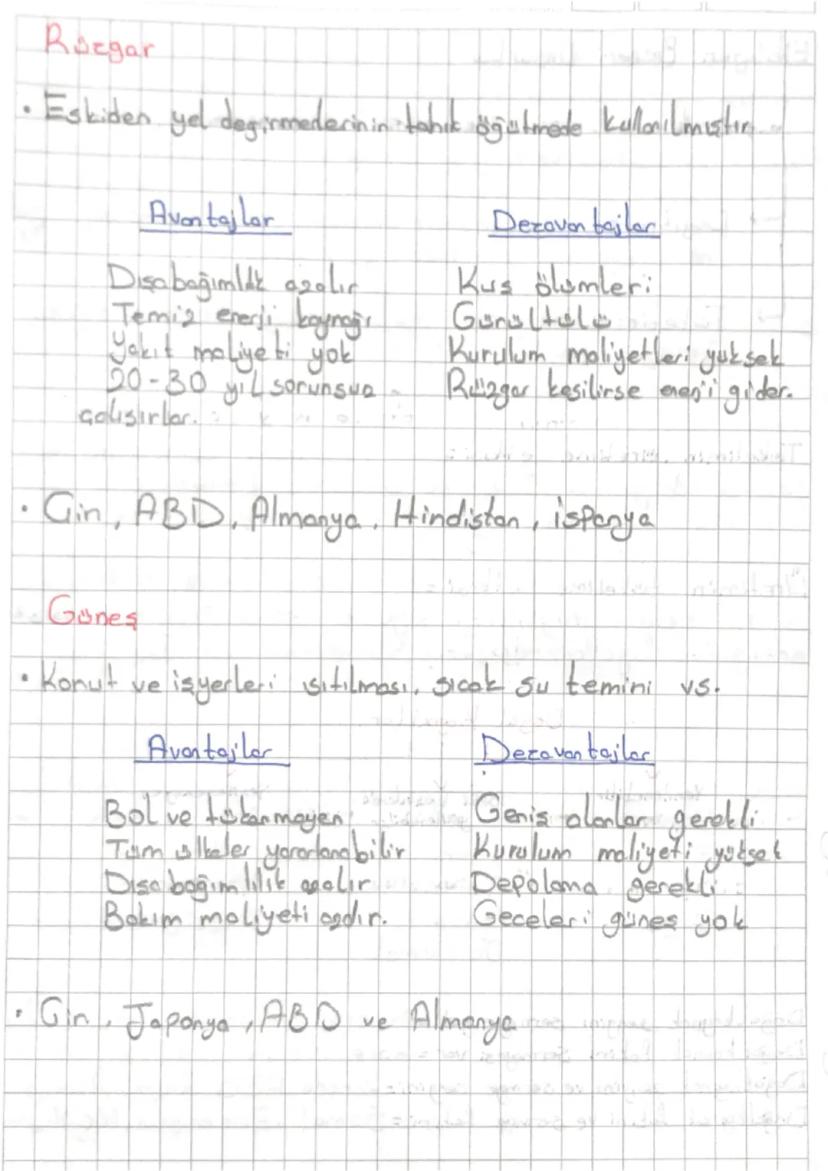 Rüzgar
• Eskiden yel değirmederinin tahıl öğütmede kullanılmıştır.
Avantajlar
Dışa bağımlılık azalır
Temiz enerji kaynağı
Yakıt maliyeti yok
20-30 yıl sorunsuz
çalışırlar.
Dezavantajlar
Kuş ölümleri
Gürültülü
Kurulum maliyetleri yüksek
Rüzgar kesilirse enerji gider.
• Çin, ABD, Almanya, Hindistan, İspanya
Güneş
• Konut ve işyerleri ısıtılması, sıcak su temini vs.
Avantajlar
Bol ve tükenmeyen
Tüm ülkeler yararlanabilir
Dışa bağımlılık azalır
Bakım maliyeti azdır.
Dezavantajlar
Geniş alanlar gerekli
Kurulum maliyeti yüksek
Depolama gerekli
Geceleri güneş yok
• Çin, Japonya, ABD ve Almanya